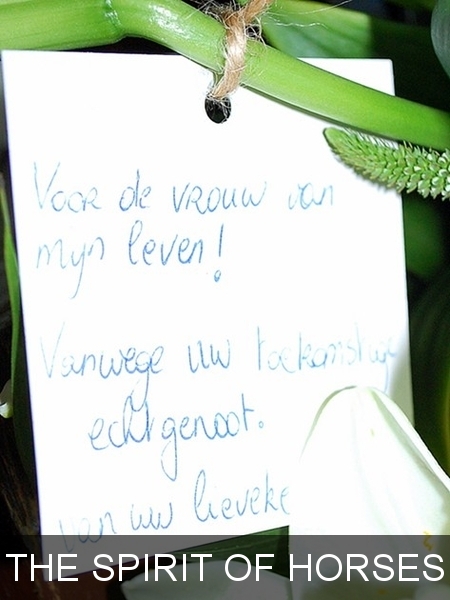 Voor de vrouw van
mijn leven!
Vanwege uw toekomstige
echtgenoot.
van uw lieveke
THE SPIRIT OF HORSES